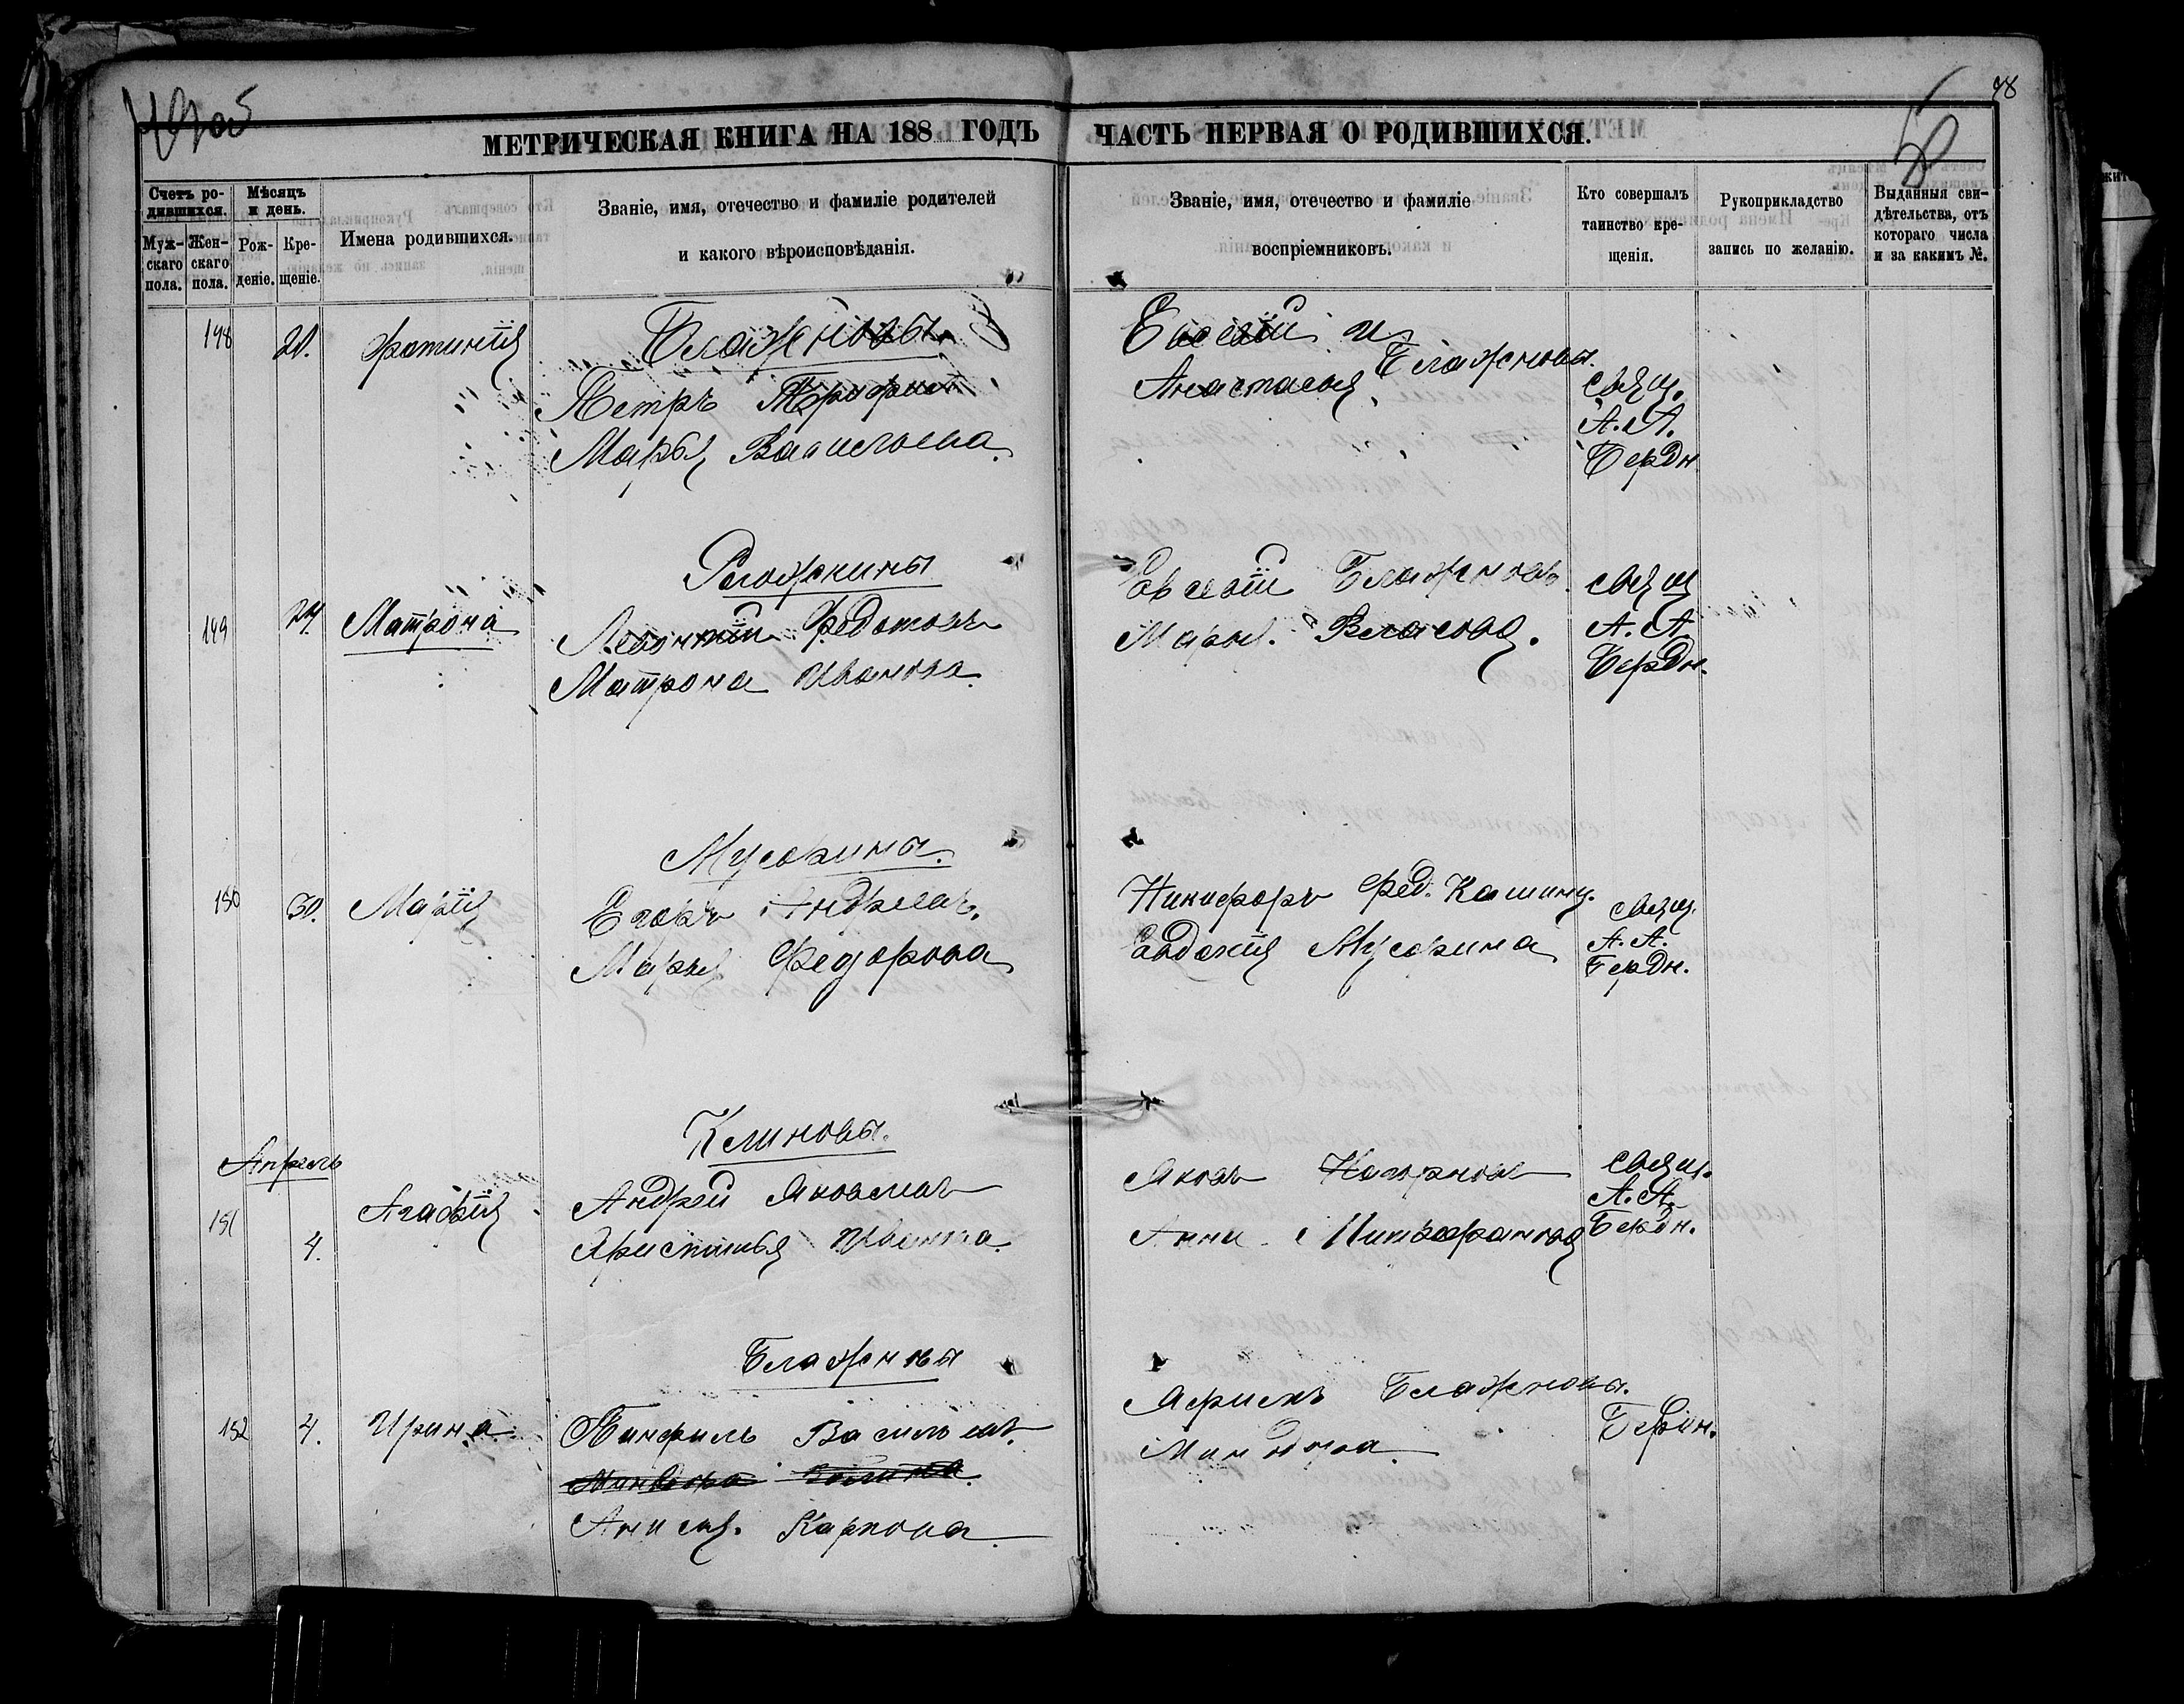 48
50
МЕТРИЧЕСКАЯ КНИГА НА 188 ГОДЪ
ЧАСТЬ ПЕРВАЯ О РОДИВШИХСЯ.
Счетъ ро-
дившихся.
Муж-
скаго
пола.
Жен-
скаго
пола.
Мѣсяцъ
и день.
Рож-
деніе.
Кре-
щеніе.
Имена родившихся.
Званіе, имя, отечество и фамиліе родителей
и какого вѣроисповѣданія.
Званіе, имя, отечество и фамиліе
воспріемниковъ.
Кто совершалъ
таинство кре-
щенія.
Рукоприкладство
запись по желанію.
Выданныя сви-
дѣтельства, отъ
котораго числа
и за какимъ №.
148 20. Фотинія
Блажновы
Петръ
Марья Васильева.
Евсевій и
Анастасья Блажновы.
свящ.
А. А.
Бердн
149 24. Матрона
Рогожкины
Леонтій Федотовъ
Матрона Иванова.
Евсевій Блажновъ
Марья Власова.
свящ
А. А.
Бердн.
150 30. Марія
Мусорины.
Егоръ Андреевъ.
Марья Федорова
Никифоръ Фед. Кашинц.
Евдокія Мусорина
свящ.
А. А.
Бердн.
Апрель
151 4. Агафія
Клиновы.
Андрей Яковлевъ
Христинья Иванова.
Яковъ
Анна Митрофанова
свящ.
А. А.
Бердн.
152 4. Ирина
Блажновы
Панфилъ Васильевъ.
Анисья Карпова.
Блажновы.